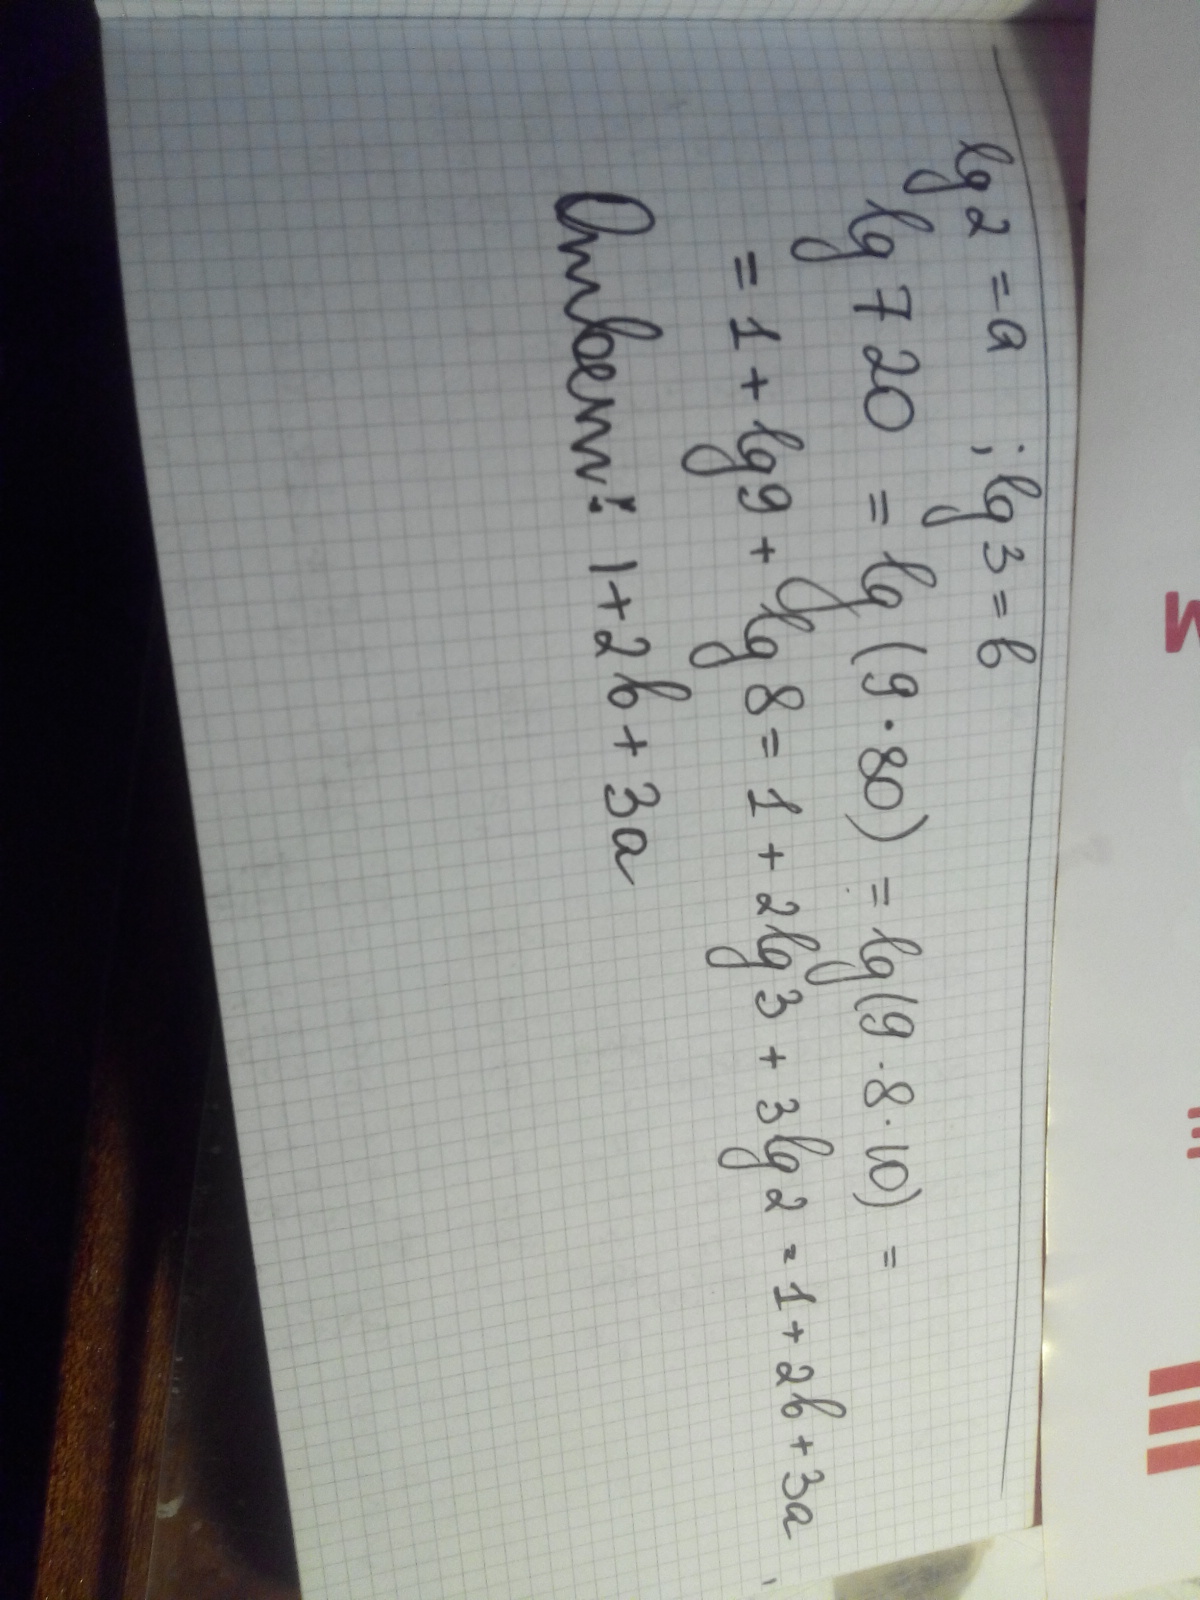 lg 2 = a ; lg 3 = b
lg 720 = lg (9 · 80) = lg (9 · 8 · 10) =
= 1 + lg 9 + lg 8 = 1 + 2 lg 3 + 3 lg 2 = 1 + 2b + 3a
Ответ: 1 + 2b + 3a